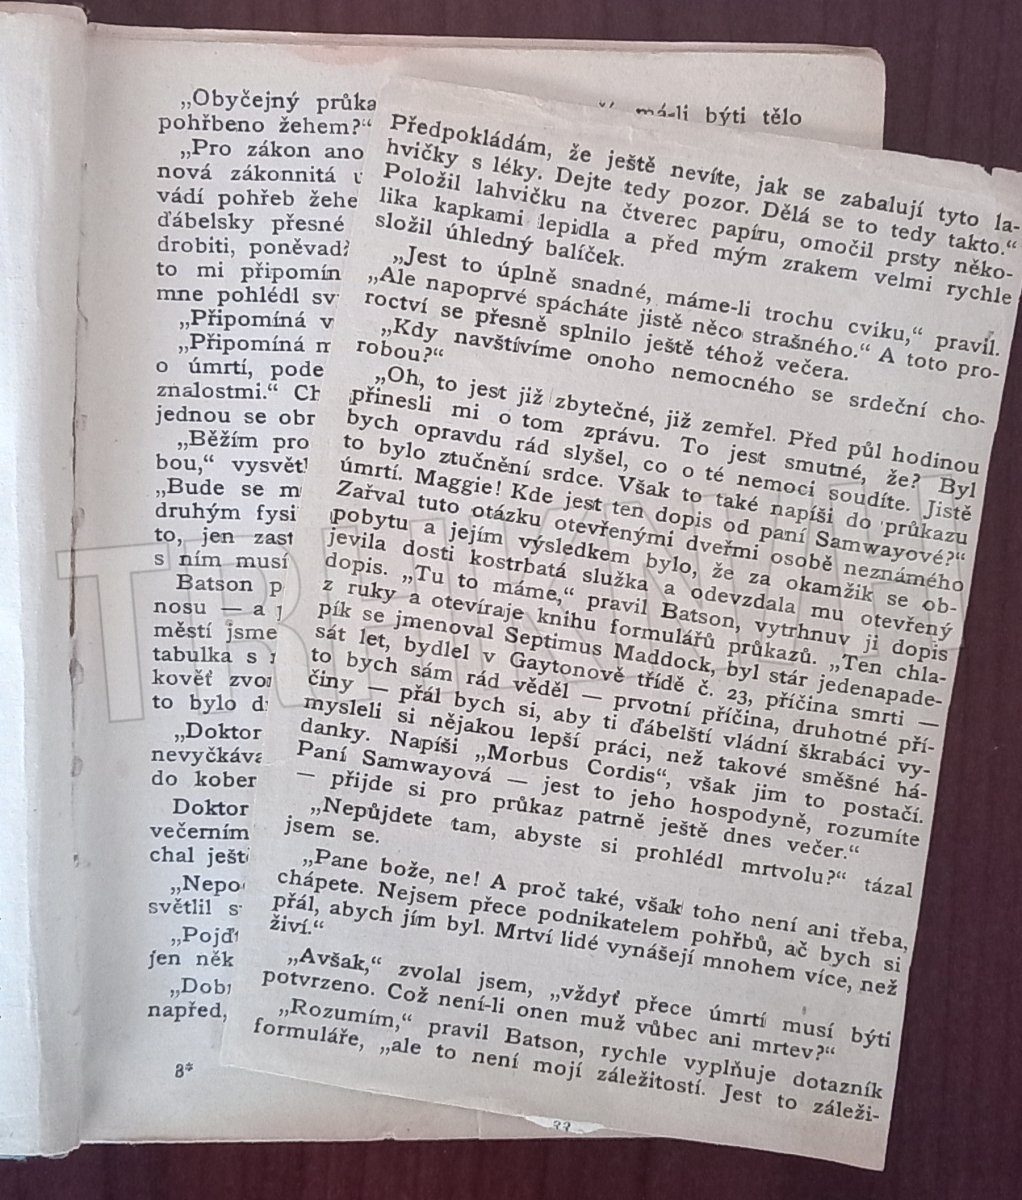 „Obyčejný průka
má-li býti tělo
pohřbeno žehem?“
„Pro zákon ano
nová zákonnitá
vádí pohřeb žehe
ďábelsky přesné
drobiti, poněvadž
to mi připomín
mne pohlédl sv
„Připomíná v
„Připomíná m
o úmrtí, pode
znalostmi.“ Ch
jednou se obr
„Běžím pro
bou,“ vysvětl
„Bude se m
druhým fysi
to, jen zast
s ním musí
Batson p
nosu — a
městí jsme
tabulka s
kověť zvo
to bylo d
„Doktor
nevyčkáva
do kober
Doktor
večerním
chal ješt
„Nepo
světlil s
„Pojď
jen něk
„Dob
napřed,
8*
Předpokládám, že ještě nevíte, jak se zabalují tyto la-
hvičky s léky. Dejte tedy pozor. Dělá se to tedy takto.“
Položil lahvičku na čtverec papíru, omočil prsty něko-
lika kapkami lepidla a před mým zrakem velmi rychle
složil úhledný balíček.
„Jest to úplně snadné, máme-li trochu cviku,“ pravil.
„Ale napoprvé spácháte jistě něco strašného.“ A toto pro-
roctví se přesně splnilo ještě téhož večera.
„Kdy navštívíme onoho nemocného se srdeční cho-
robou?“
„Oh, to jest již zbytečné, již zemřel. Před půl hodinou
přinesli mi o tom zprávu. To jest smutné, že? Byl
bych opravdu rád slyšel, co o té nemoci soudíte. Jistě
to bylo ztučnění srdce. Však to také napíši do průkazu
úmrtí. Maggie! Kde jest ten dopis od paní Samwayové?“
Zařval tuto otázku otevřenými dveřmi osobě neznámého
pobytu a jejím výsledkem bylo, že za okamžik se ob-
jevila dosti kostrbatá služka a odevzdala mu otevřený
dopis. „Tu to máme,“ pravil Batson, vytrhnuv ji dopis
z ruky a otevíraje knihu formulářů průkazů. „Ten chla-
pík se jmenoval Septimus Maddock, byl stár jedenapade-
sát let, bydlel v Gaytonově třídě č. 23, příčina smrti —
to bych sám rád věděl — prvotní příčina, druhotné pří-
činy — přál bych si, aby ti ďábelští vládní škrabáci vy-
mysleli si nějakou lepší práci, než takové směšné há-
danky. Napíši „Morbus Cordis“, však jim to postačí.
Paní Samwayová — jest to jeho hospodyně, rozumíte
— přijde si pro průkaz patrně ještě dnes večer.“
„Nepůjdete tam, abyste si prohlédl mrtvolu?“ tázal
jsem se.
„Pane bože, ne! A proč také, však toho není ani třeba,
chápete. Nejsem přece podnikatelem pohřbů, ač bych si
přál, abych jím byl. Mrtví lidé vynášejí mnohem více, než
živí.“
„Avšak,“ zvolal jsem, „vždyť přece úmrtí musí býti
potvrzeno. Což není-li onen muž vůbec ani mrtev?“
„Rozumím,“ pravil Batson, rychle vyplňuje dotazník
formuláře, „ale to není mojí záležitostí. Jest to záleži-
33